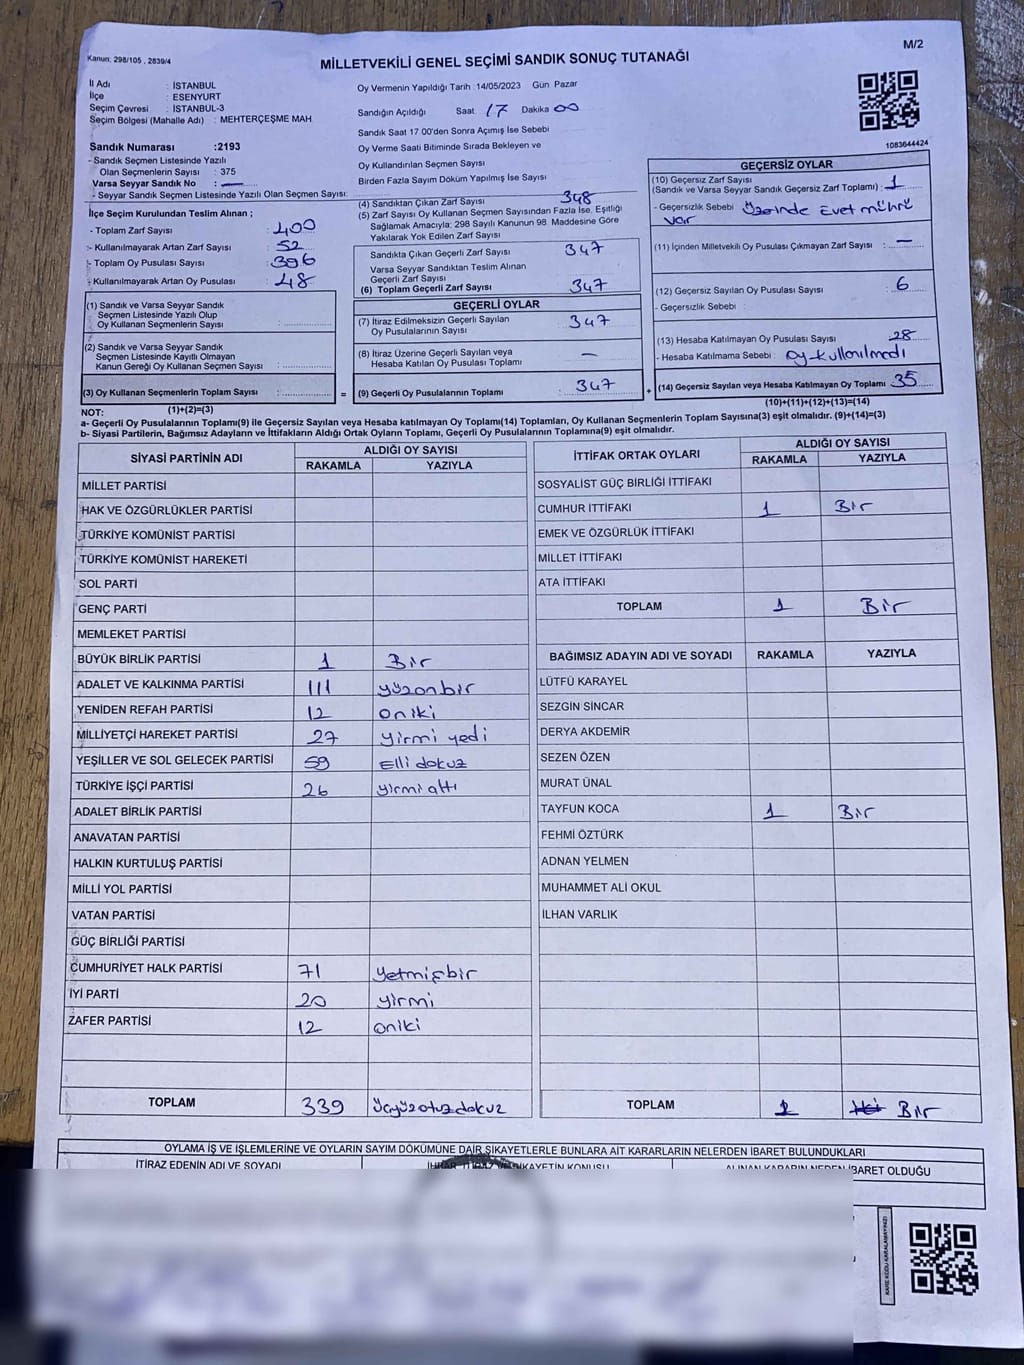 Kanun, 298/105 , 2839/4
MİLLETVEKİLİ GENEL SEÇİMİ SANDIK SONUÇ TUTANAĞI
M/2
İl Adı : İSTANBUL
İlçe : ESENYURT
Seçim Çevresi : İSTANBUL-3
Seçim Bölgesi (Mahalle Adı) : MEHTERÇEŞME MAH
Sandık Numarası :2193
- Sandık Seçmen Listesinde Yazılı
Olan Seçmenlerin Sayısı : 375
Varsa Seyyar Sandık No : —
- Seyyar Sandık Seçmen Listesinde Yazılı Olan Seçmen Sayısı:
İlçe Seçim Kurulundan Teslim Alınan ;
- Toplam Zarf Sayısı : 400
- Kullanılmayarak Artan Zarf Sayısı : 52
- Toplam Oy Pusulası Sayısı : 396
- Kullanılmayarak Artan Oy Pusulası : 48
(1) Sandık ve Varsa Seyyar Sandık
Seçmen Listesinde Yazılı Olup
Oy Kullanan Seçmenlerin Sayısı :
(2) Sandık ve Varsa Seyyar Sandık
Seçmen Listesinde Kayıtlı Olmayan
Kanun Gereği Oy Kullanan Seçmen Sayısı :
(3) Oy Kullanan Seçmenlerin Toplam Sayısı :
(1)+(2)=(3)
Oy Vermenin Yapıldığı Tarih : 14/05/2023 Gün Pazar
Sandığın Açıldığı Saat 17 Dakika 00
Sandık Saat 17 00'den Sonra Açımış İse Sebebi
Oy Verme Saati Bitiminde Sırada Bekleyen ve
Oy Kullandırılan Seçmen Sayısı
Birden Fazla Sayım Döküm Yapılmış İse Sayısı
(4) Sandıktan Çıkan Zarf Sayısı 348
(5) Zarf Sayısı Oy Kullanan Seçmen Sayısından Fazla İse, Eşitliği
Sağlamak Amacıyla; 298 Sayılı Kanunun 98 Maddesine Göre
Yakılarak Yok Edilen Zarf Sayısı
Sandıkta Çıkan Geçerli Zarf Sayısı 347
Varsa Seyyar Sandıktan Teslim Alınan
Geçerli Zarf Sayısı
(6) Toplam Geçerli Zarf Sayısı 347
GEÇERLİ OYLAR
(7) İtiraz Edilmeksizin Geçerli Sayılan
Oy Pusulalarının Sayısı 347
(8) İtiraz Üzerine Geçerli Sayılan veya
Hesaba Katılan Oy Pusulası Toplamı —
= (9) Geçerli Oy Pusulalarının Toplamı 347
1083644424
GEÇERSİZ OYLAR
(10) Geçersiz Zarf Sayısı
(Sandık ve Varsa Seyyar Sandık Geçersiz Zarf Toplamı) : 1
- Geçersizlik Sebebi Üzerinde Evet mührü
var
(11) İçinden Milletvekili Oy Pusulası Çıkmayan Zarf Sayısı : —
(12) Geçersiz Sayılan Oy Pusulası Sayısı : 6
- Geçersizlik Sebebi :
(13) Hesaba Katılmayan Oy Pusulası Sayısı : 28
- Hesaba Katılmama Sebebi : oy kullanılmadı
+ (14) Geçersiz Sayılan veya Hesaba Katılmayan Oy Toplamı 35
(10)+(11)+(12)+(13)=(14)
NOT:
a- Geçerli Oy Pusulalarının Toplamı(9) ile Geçersiz Sayılan veya Hesaba katılmayan Oy Toplamı(14) Toplamları, Oy Kullanan Seçmenlerin Toplam Sayısına(3) eşit olmalıdır. (9)+(14)=(3)
b- Siyasi Partilerin, Bağımsız Adayların ve İttifakların Aldığı Ortak Oyların Toplamı, Geçerli Oy Pusulalarının Toplamına(9) eşit olmalıdır.
SİYASİ PARTİNİN ADI ALDIĞI OY SAYISI
RAKAMLA YAZIYLA
MİLLET PARTİSİ
HAK VE ÖZGÜRLÜKLER PARTİSİ
TÜRKİYE KOMÜNİST PARTİSİ
TÜRKİYE KOMÜNİST HAREKETİ
SOL PARTİ
GENÇ PARTİ
MEMLEKET PARTİSİ
BÜYÜK BİRLİK PARTİSİ 1 Bir
ADALET VE KALKINMA PARTİSİ 111 yüzonbir
YENİDEN REFAH PARTİSİ 12 oniki
MİLLİYETÇİ HAREKET PARTİSİ 27 yirmi yedi
YEŞİLLER VE SOL GELECEK PARTİSİ 59 Elli dokuz
TÜRKİYE İŞÇİ PARTİSİ 26 yirmi altı
ADALET BİRLİK PARTİSİ
ANAVATAN PARTİSİ
HALKIN KURTULUŞ PARTİSİ
MİLLİ YOL PARTİSİ
VATAN PARTİSİ
GÜÇ BİRLİĞİ PARTİSİ
CUMHURİYET HALK PARTİSİ 71 yetmişbir
İYİ PARTİ 20 yirmi
ZAFER PARTİSİ 12 oniki
TOPLAM 339 üçyüzotuzdokuz
İTTİFAK ORTAK OYLARI ALDIĞI OY SAYISI
RAKAMLA YAZIYLA
SOSYALİST GÜÇ BİRLİĞİ İTTİFAKI
CUMHUR İTTİFAKI 1 Bir
EMEK VE ÖZGÜRLÜK İTTİFAKI
MİLLET İTTİFAKI
ATA İTTİFAKI
TOPLAM 1 Bir
BAĞIMSIZ ADAYIN ADI VE SOYADI RAKAMLA YAZIYLA
LÜTFÜ KARAYEL
SEZGİN SİNCAR
DERYA AKDEMİR
SEZEN ÖZEN
MURAT ÜNAL
TAYFUN KOCA 1 Bir
FEHMİ ÖZTÜRK
ADNAN YELMEN
MUHAMMET ALİ OKUL
İLHAN VARLIK
TOPLAM 1 Bir
OYLAMA İŞ VE İŞLEMLERİNE VE OYLARIN SAYIM DÖKÜMÜNE DAİR ŞİKAYETLERLE BUNLARA AİT KARARLARIN NELERDEN İBARET BULUNDUKLARI
İTİRAZ EDENİN ADI VE SOYADI
ALINAN KARARIN NEDEN İBARET OLDUĞU
KARE KODU KARALAMAYINIZ!